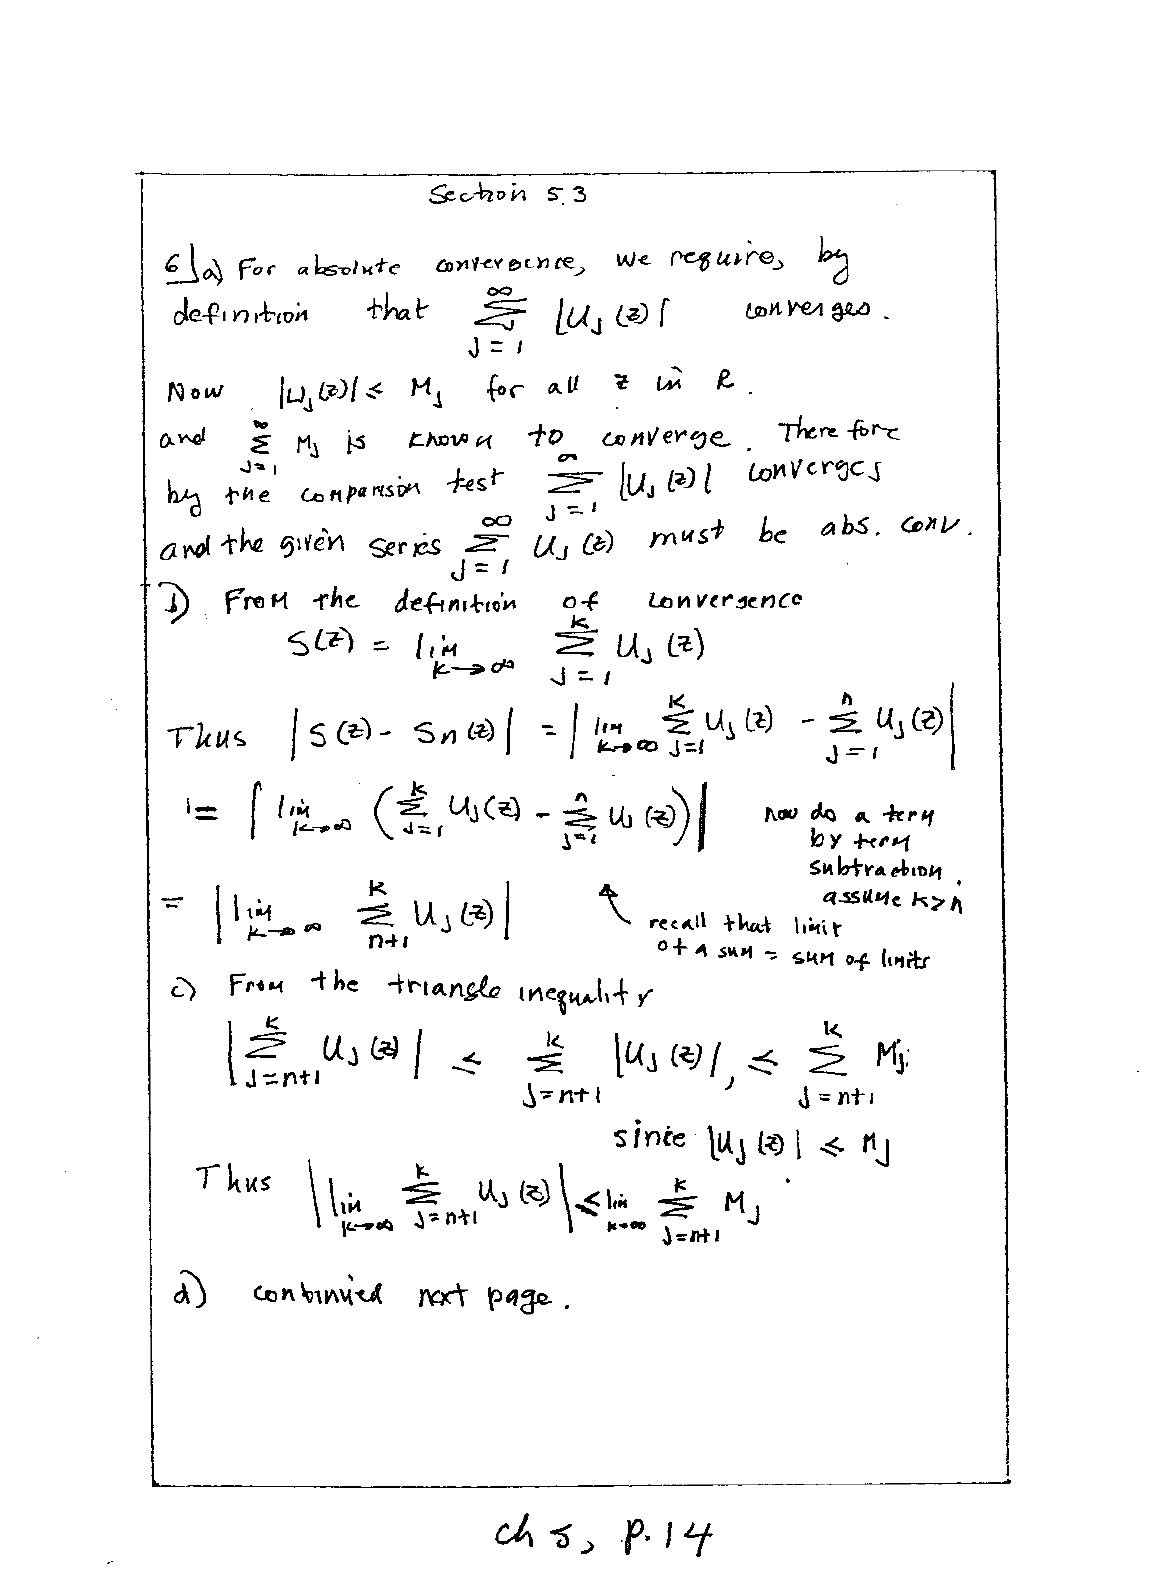 Section 5.3
6] a) For absolute convergence, we require, by
definition that ∑_{j=1}^{∞} |u_j(z)| converges.
Now |u_j(z)| ≤ M_j for all z in R.
and ∑_{j=1}^{∞} M_j is known to converge. Therefore
by the comparison test ∑_{j=1}^{∞} |u_j(z)| converges
and the given series ∑_{j=1}^{∞} u_j(z) must be abs. conv.
b) From the definition of convergence
S(z) = lim_{k→∞} ∑_{j=1}^{k} u_j(z)
Thus |S(z) - Sn(z)| = |lim_{k→∞} ∑_{j=1}^{k} u_j(z) - ∑_{j=1}^{n} u_j(z)|
= |lim_{k→∞} (∑_{j=1}^{k} u_j(z) - ∑_{j=1}^{n} u_j(z))|
now do a term
by term
subtraction.
assume k>n
= |lim_{k→∞} ∑_{n+1}^{k} u_j(z)|
recall that limit
of a sum = sum of limits
c) From the triangle inequality
|∑_{j=n+1}^{k} u_j(z)| ≤ ∑_{j=n+1}^{k} |u_j(z)|, ≤ ∑_{j=n+1}^{k} M_j.
since |u_j(z)| ≤ M_j
Thus |lim_{k→∞} ∑_{j=n+1}^{k} u_j(z)| ≤ lim_{k→∞} ∑_{j=n+1}^{k} M_j
d) continued next page.
ch 5, p. 14